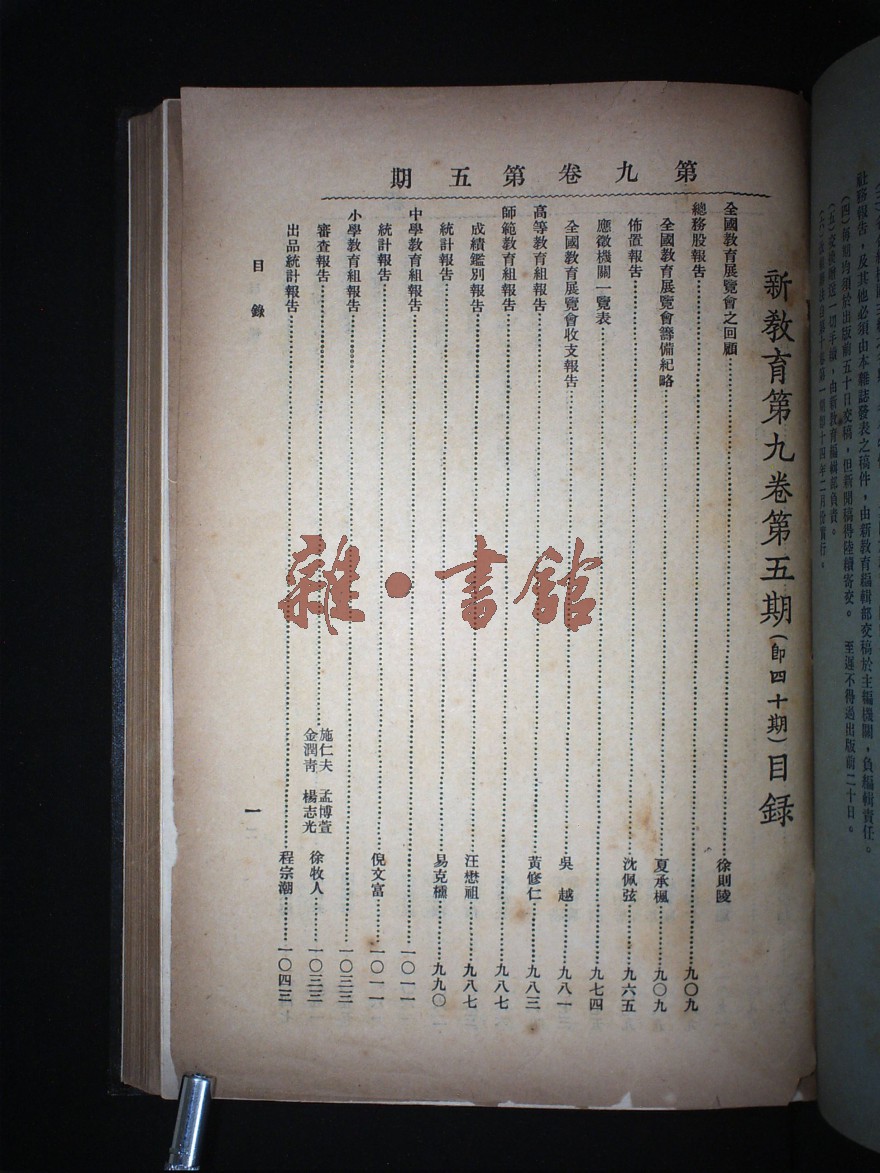 社務報告，及其他必須由本雜誌發表之稿件，由新教育編輯部交稿於主編機關，負編輯責任。
（四）每期均須於出版前五十日交稿，但新聞稿得陸續寄交。　至遲不得過出版前二十日。
（五）交換贈送一切手續，由新教育編輯部負責。
第九卷第五期
新教育第九卷第五期（即四十期）目錄
全國教育展覽會之回顧……徐則陵
總務股報告……九〇九
全國教育展覽會籌備紀略……夏承楓……九〇九
佈置報告……沈佩弦……九六五
應徵機關一覽表……九七四
全國教育展覽會收支報告……吳　越……九八一
高等教育組報告……黃修仁……九八三
師範教育組報告……九八七
成績鑑別報告……汪懋祖……九八七
統計報告……易克櫄……九九〇
中學教育組報告……一〇一一
統計報告……倪文富……一〇一一
小學教育組報告……一〇三三
審查報告……施仁夫　孟博萱　金潤靑　楊志光　徐牧人……一〇三三
出品統計報告……程宗潮……一〇四三
目錄
一
雜·書館